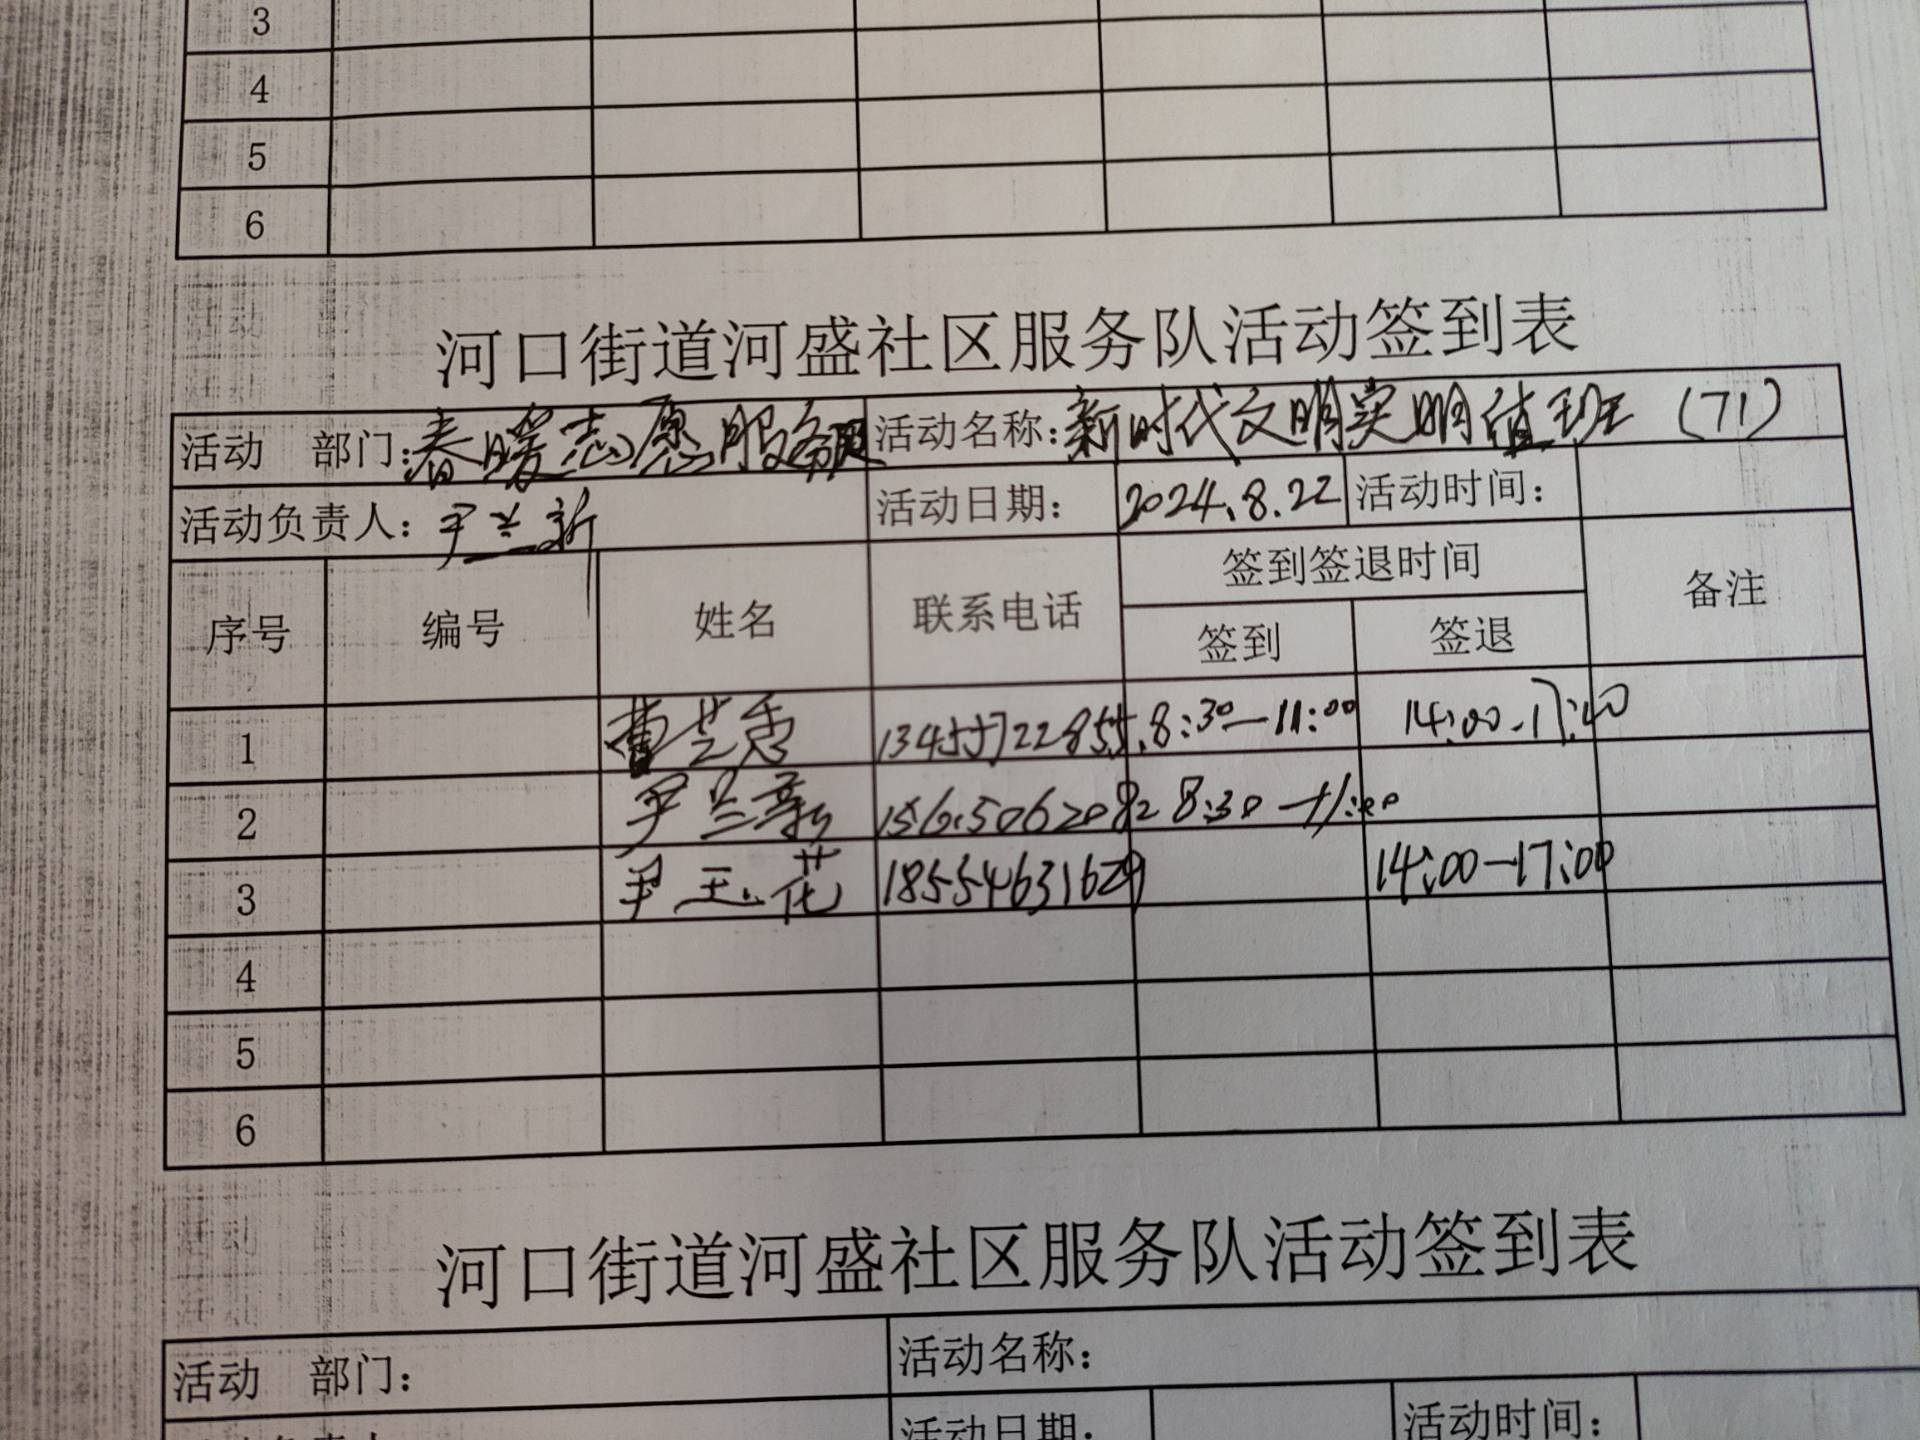 3
4
5
6
河口街道河盛社区服务队活动签到表
活动 部门：春暖志愿服务队 活动名称：新时代文明实明值班（71）
活动负责人：尹兰新 活动日期： 2024.8.22 活动时间：
序号 编号 姓名 联系电话 签到签退时间 备注
签到 签退
1 8:30-11:00 14:00-17:00
2 尹兰新 1565062082 8:30-11:00
3 尹玉花 18554631629 14:00-17:00
4
5
6
河口街道河盛社区服务队活动签到表
活动 部门： 活动名称：
活动日期： 活动时间：